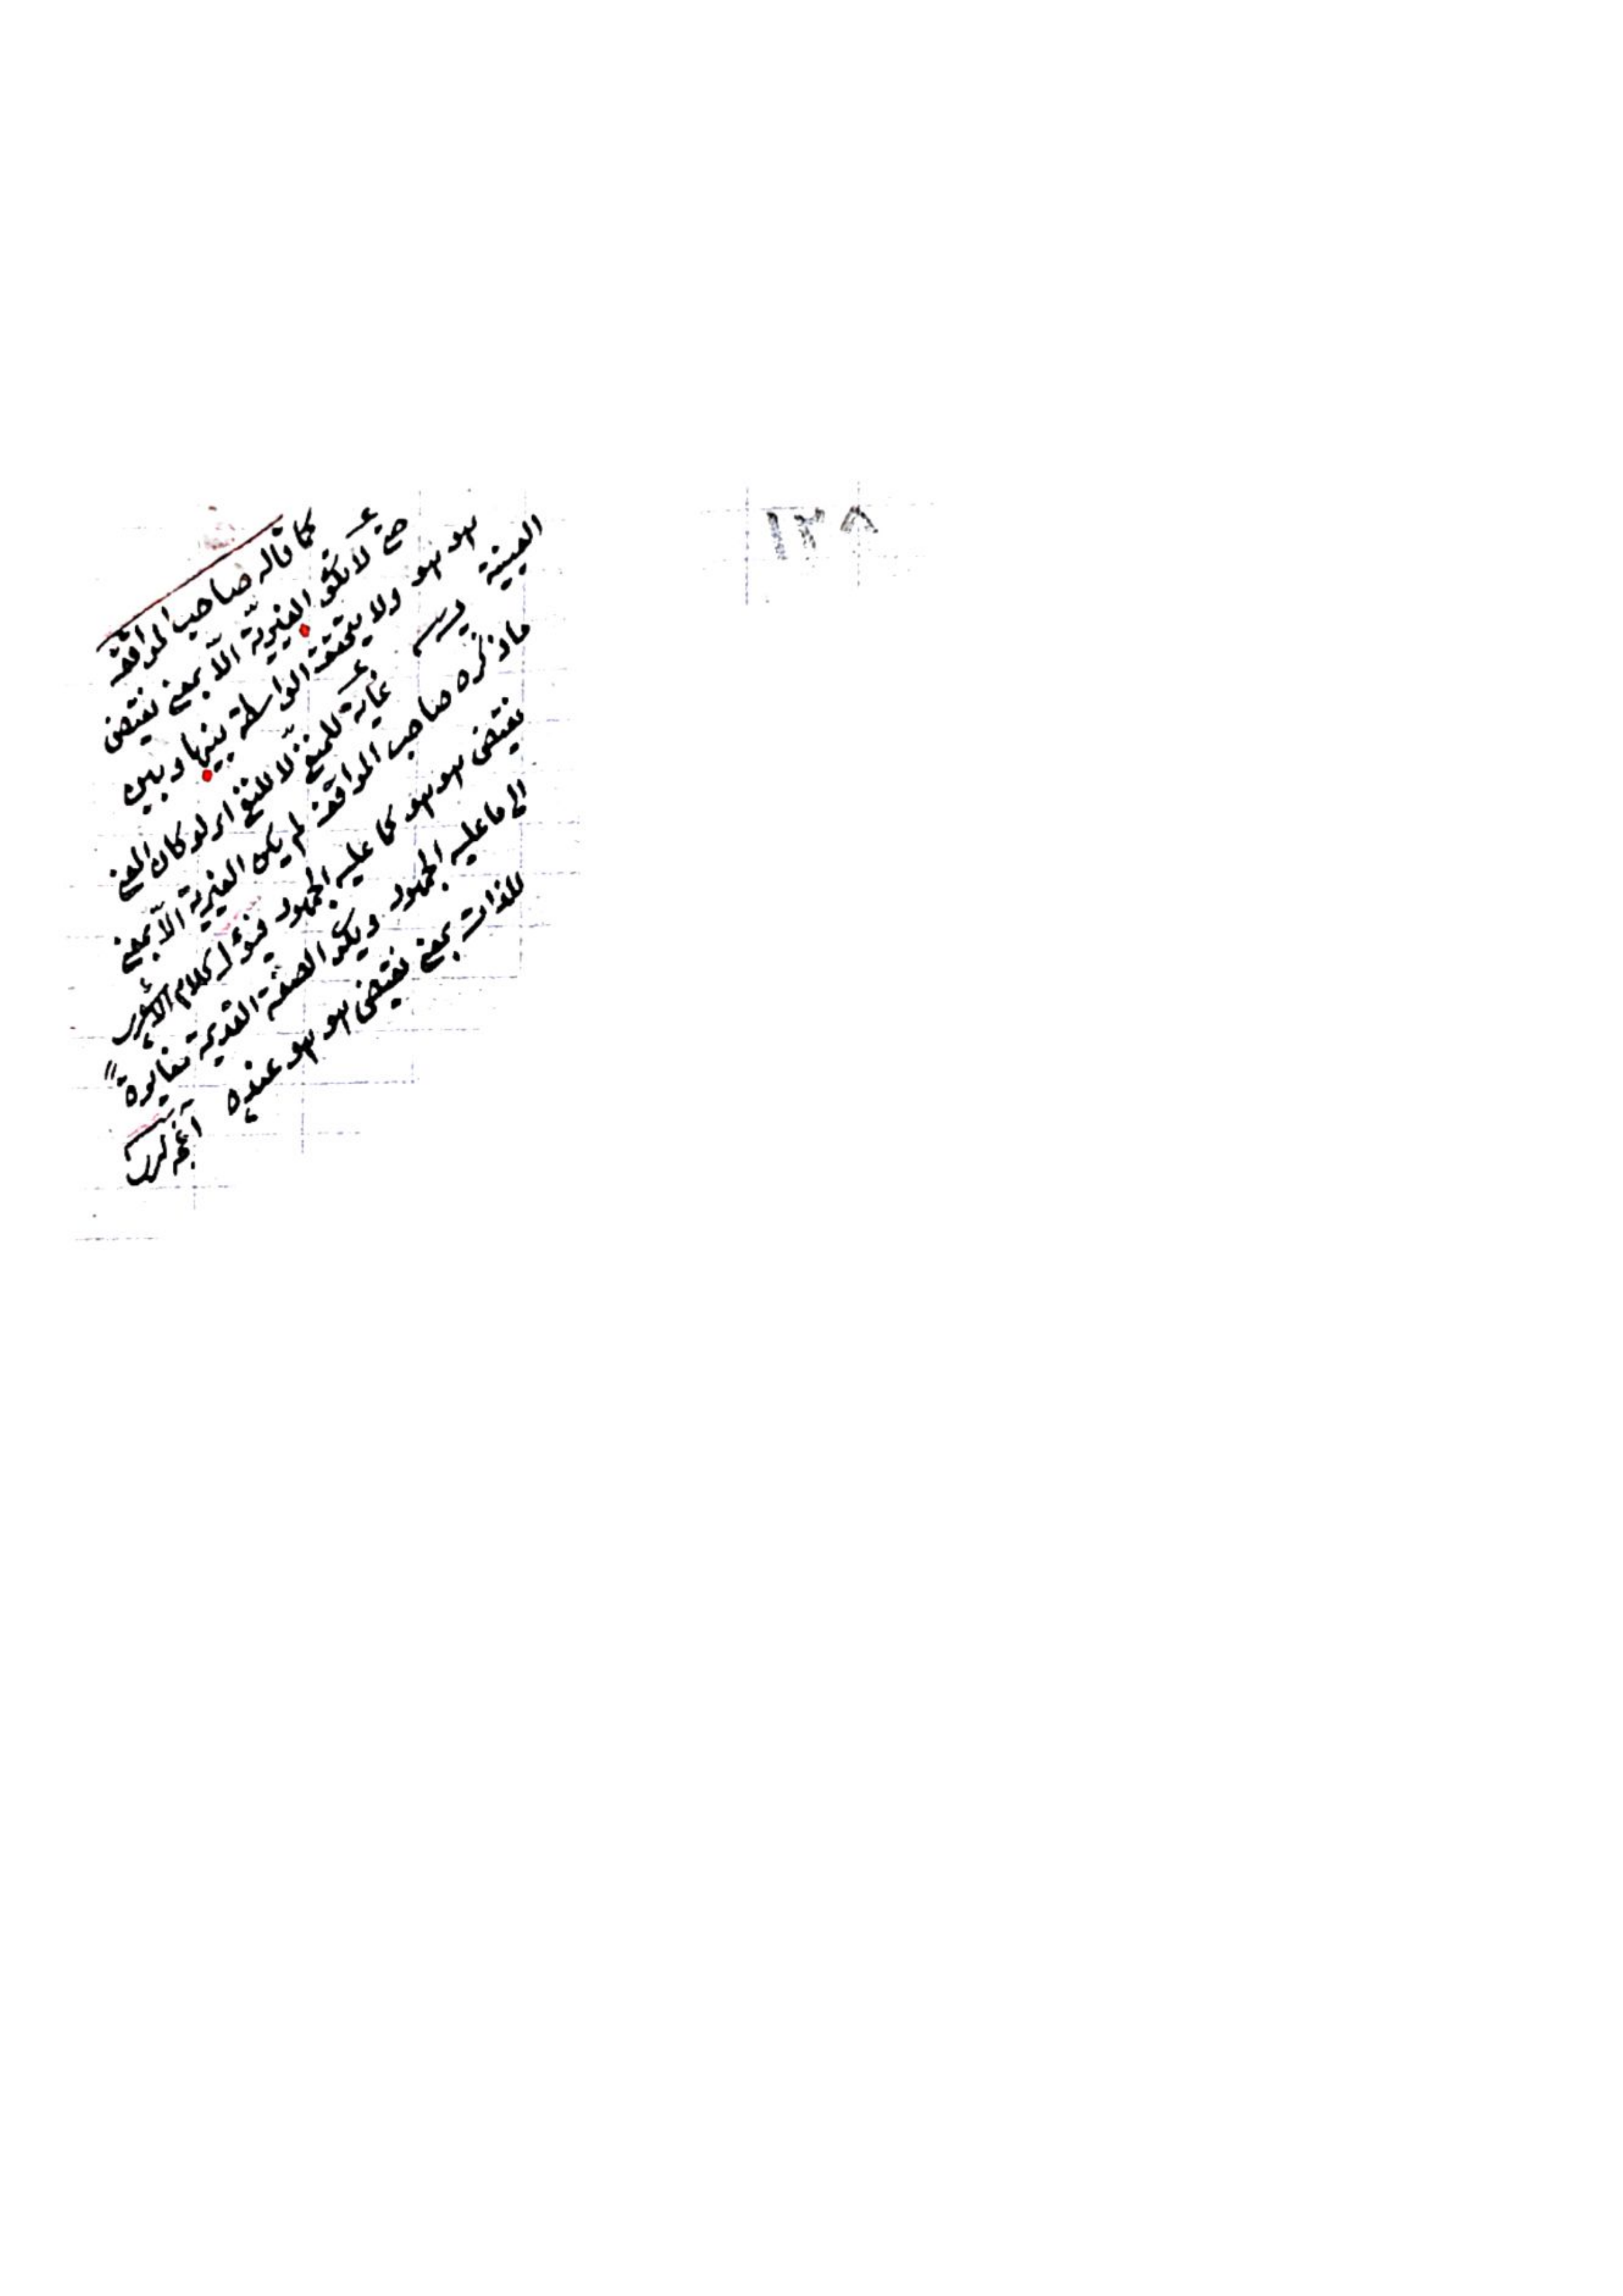 كما قاله صاحب المواقف
حتى لا يكون الغيرية الا بمعنى نقيض
هو هو ولا يتحقق الواسطة بينها وبين
العينية غاية للمنفي لا للنفي اى لو كان المعنى
ما ذكره صاحب المواقف لم يكن الغيرية الا بمعنى
نقيض هو هو كما عليه الجمهور فيؤل كلام
الى ما عليه الجمهور ويكون الصفة القديمة مغايرة
للذات بمعنى نقيض هو هو عنده
١٣٨